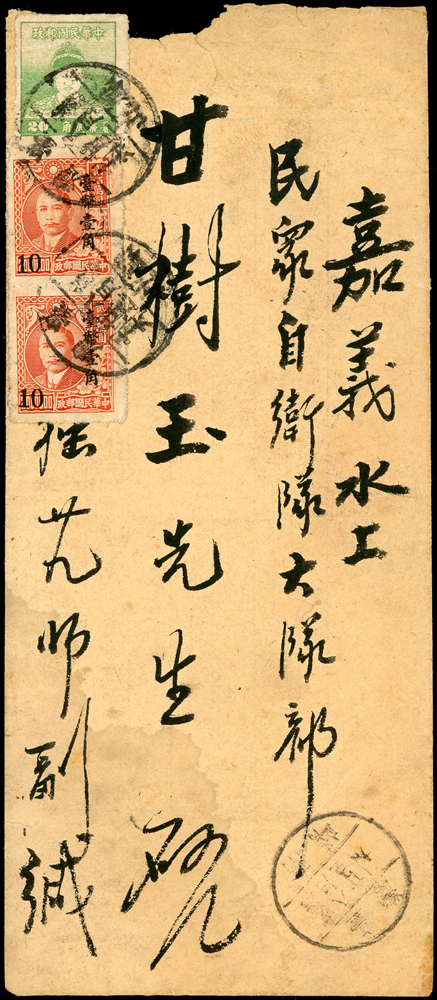 嘉義水上
民眾自衛隊大隊部
甘樹玉先生 啟
廿九師副緘
中華民國郵政
20
臺幣壹角
10
中華民國郵政
臺幣壹角
10
中華民國郵政